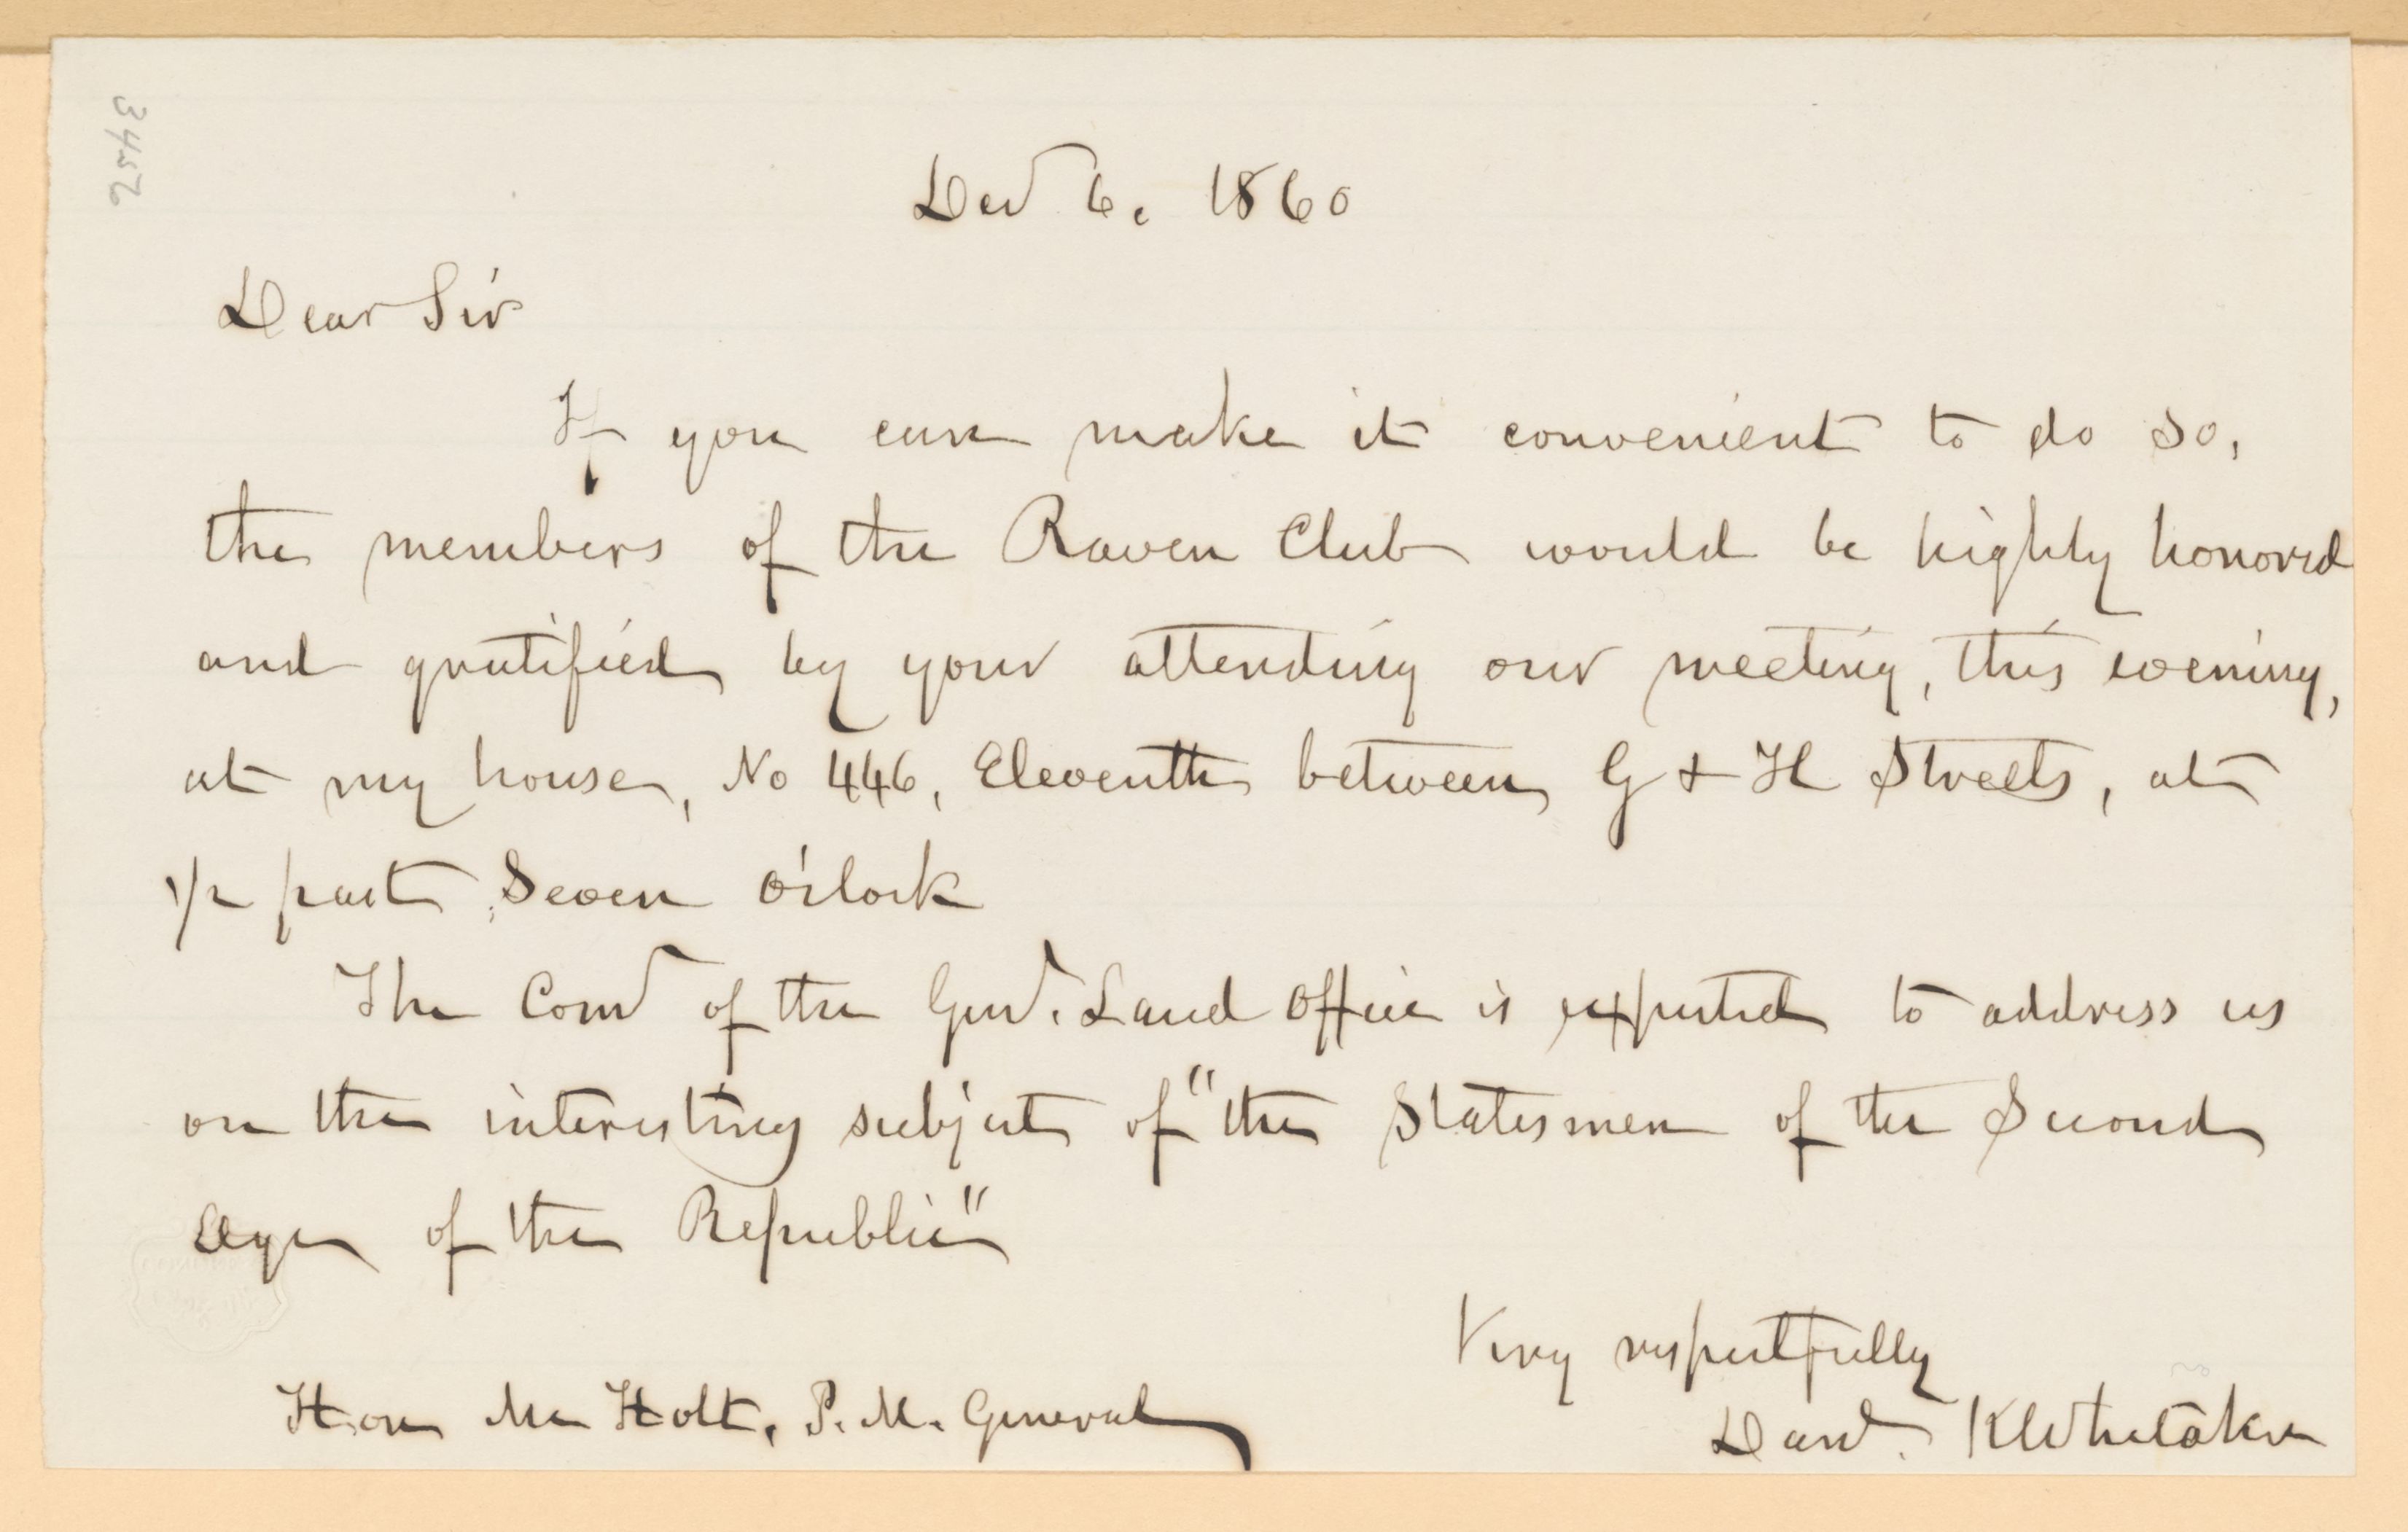 3456
Decr 6. 1860
Dear Sir
If you can make it convenient to do so,
the members of the Raven Club would be highly honored
and gratified by your attending our meeting, this evening,
at my house, No 446, Eleventh between G & H Streets, at
1/2 past Seven o'clock
The Comr of the Genl. Land Office is expected to address us
on the interesting subject of "the Statesmen of the Second
Age of the Republic"
Very respectfully
Danl. K Whitaker
Hon Mr Holt, P. M. General